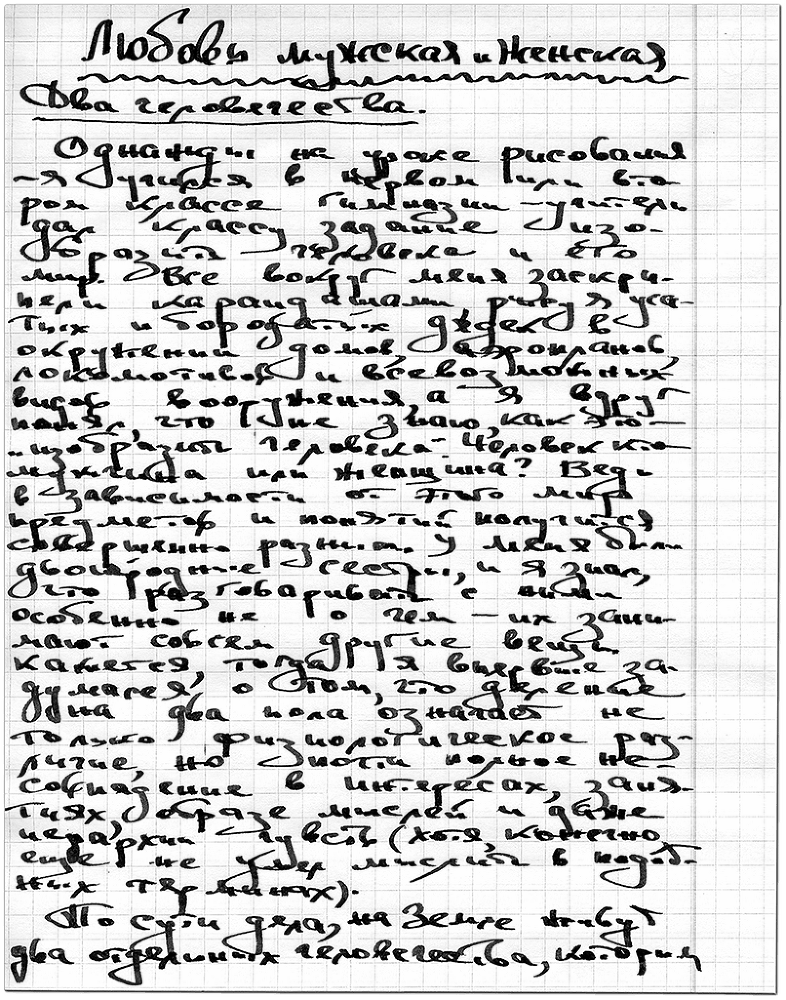 Любовь мужская и женская
Два человечества.
Однажды на уроке рисования
– я учился в первом или вто-
ром классе гимназии – учитель
дал классу задание изо-
бразить человека и его
мир. Все вокруг меня заскри-
пели карандашами рисуя уса-
тых и бородатых дядек в
окружении домов, аэропланов,
локомотивов и всевозможных
видов вооружения, а я вдруг
понял, что не знаю, как это –
„изобразить человека". Человек кто –
мужчина или женщина? Ведь
в зависимости от этого мир
предметов и понятий получится
совершенно разным. У меня были
двоюродные сестры, и я знал,
что разговаривать с ними
особенно не о чем – их зани-
мают совсем другие вещи.
Кажется, тогда я впервые за-
думался о том, что деление
на два пола означает не
только физиологическое раз-
личие, но и почти полное не-
совпадение в интересах, заня-
тиях, образе мыслей и даже
иерархии чувств (хотя, конечно
ещё не умел мыслить в подоб-
ных терминах).
По сути дела, на Земле живут
два отдельных человечества, которым